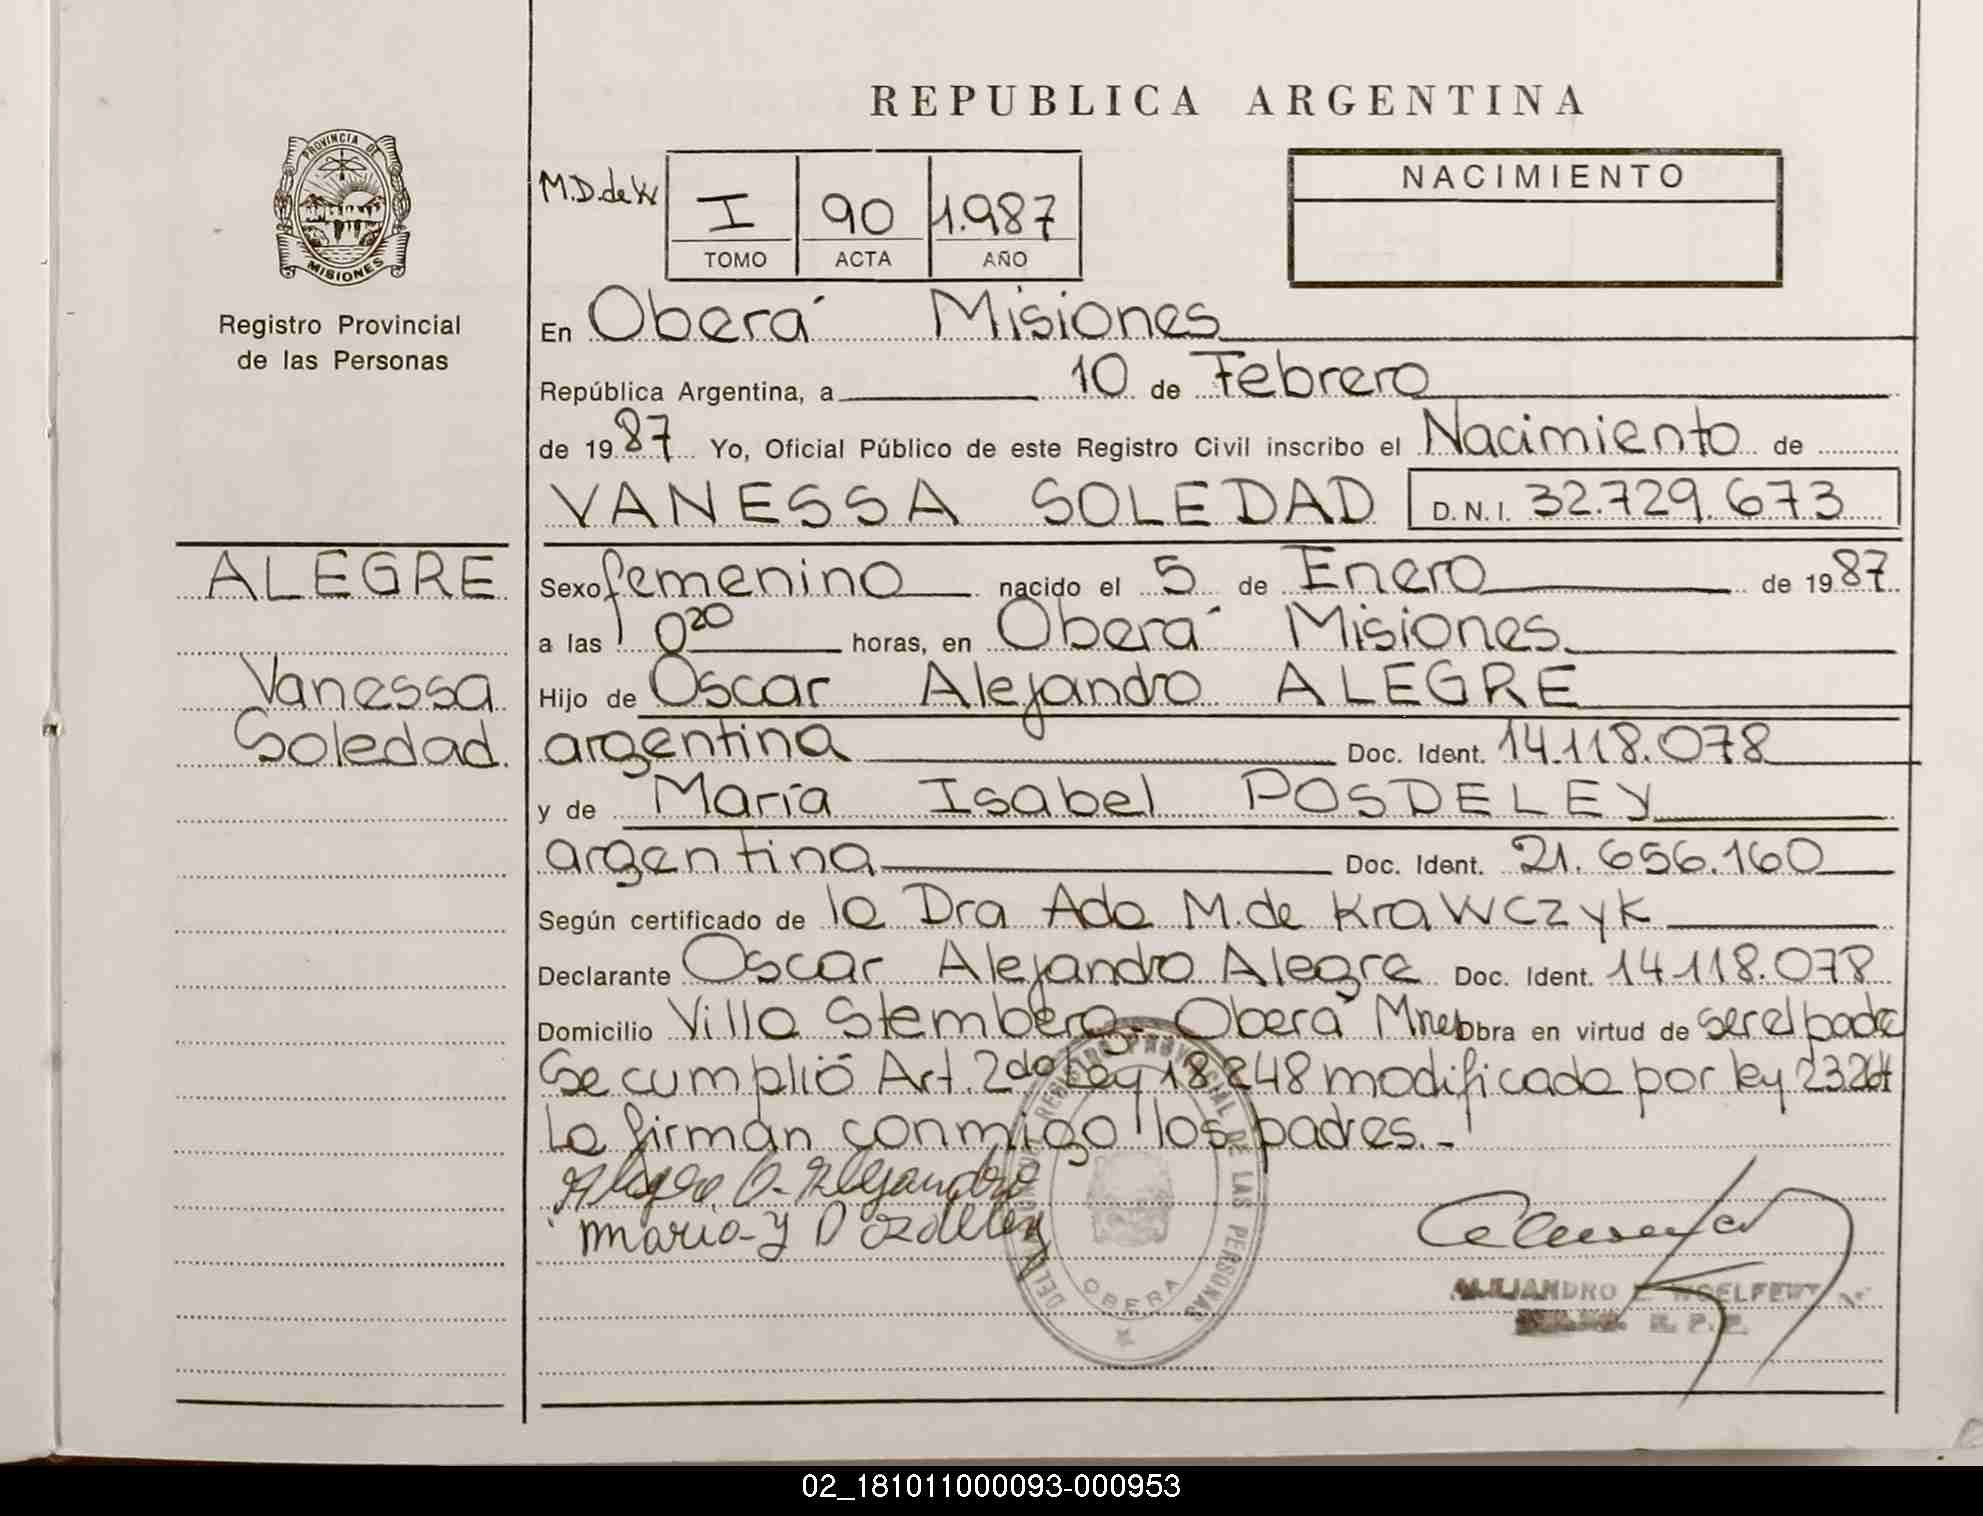 REPUBLICA ARGENTINA
PROVINCIA DE
MISIONES
Registro Provincial
de las Personas
M.D.de K
I 90 1.987
TOMO ACTA AÑO
NACIMIENTO
En Oberá Misiones
República Argentina, a 10 de Febrero
de 1987 Yo, Oficial Público de este Registro Civil inscribo el Nacimiento de
VANESSA SOLEDAD D.N.I. 32.729.673
ALEGRE
Vanessa
Soledad
Sexo femenino nacido el 5 de Enero de 1987
a las 0 20 horas, en Oberá Misiones
Hijo de Oscar Alejandro ALEGRE
argentina Doc. Ident. 14.118.078
y de María Isabel POSDELEY
argentina Doc. Ident. 21.656.160
Según certificado de la Dra Ada M. de Krawczyk
Declarante Oscar Alejandro Alegre Doc. Ident. 14.118.078
Domicilio Villa Stemberg - Oberá Mnes Obra en virtud de ser el padre
Se cumplió Art. 2do Ley 18248 modificada por ley 23264
La firman conmigo los padres.-
Alegre O. Alejandro
REGISTRO PROVINCIAL DE LAS PERSONAS
OBERA
ALEJANDRO
R. P. P.
02_181011000093-000953